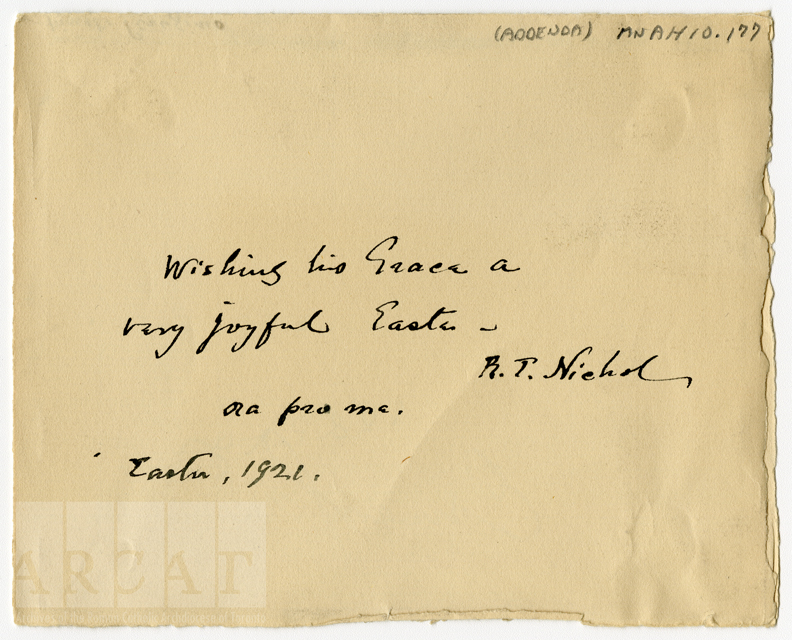 (ADDENDA) MN AH10.177
Wishing his Grace a
very joyful Easter -
R. T. Nichol
ora pro me.
Easter, 1921.
ARCAT